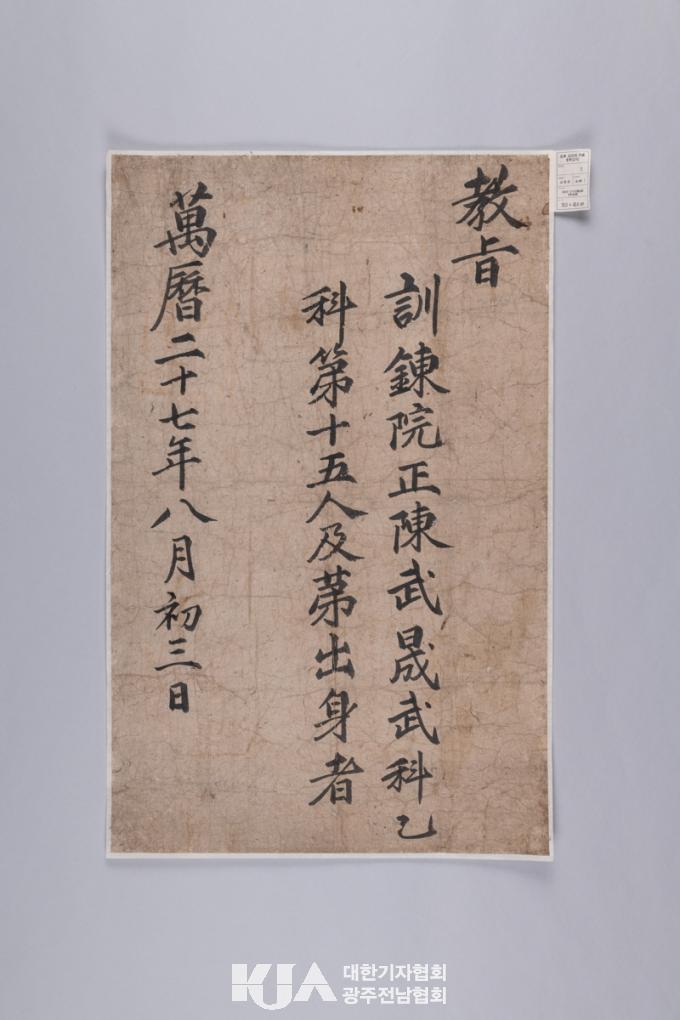 教旨
訓鍊院正陳武晟武科乙
科第十五人及第出身者
萬曆二十七年八月初三日
KJA 대한기자협회
광주전남협회